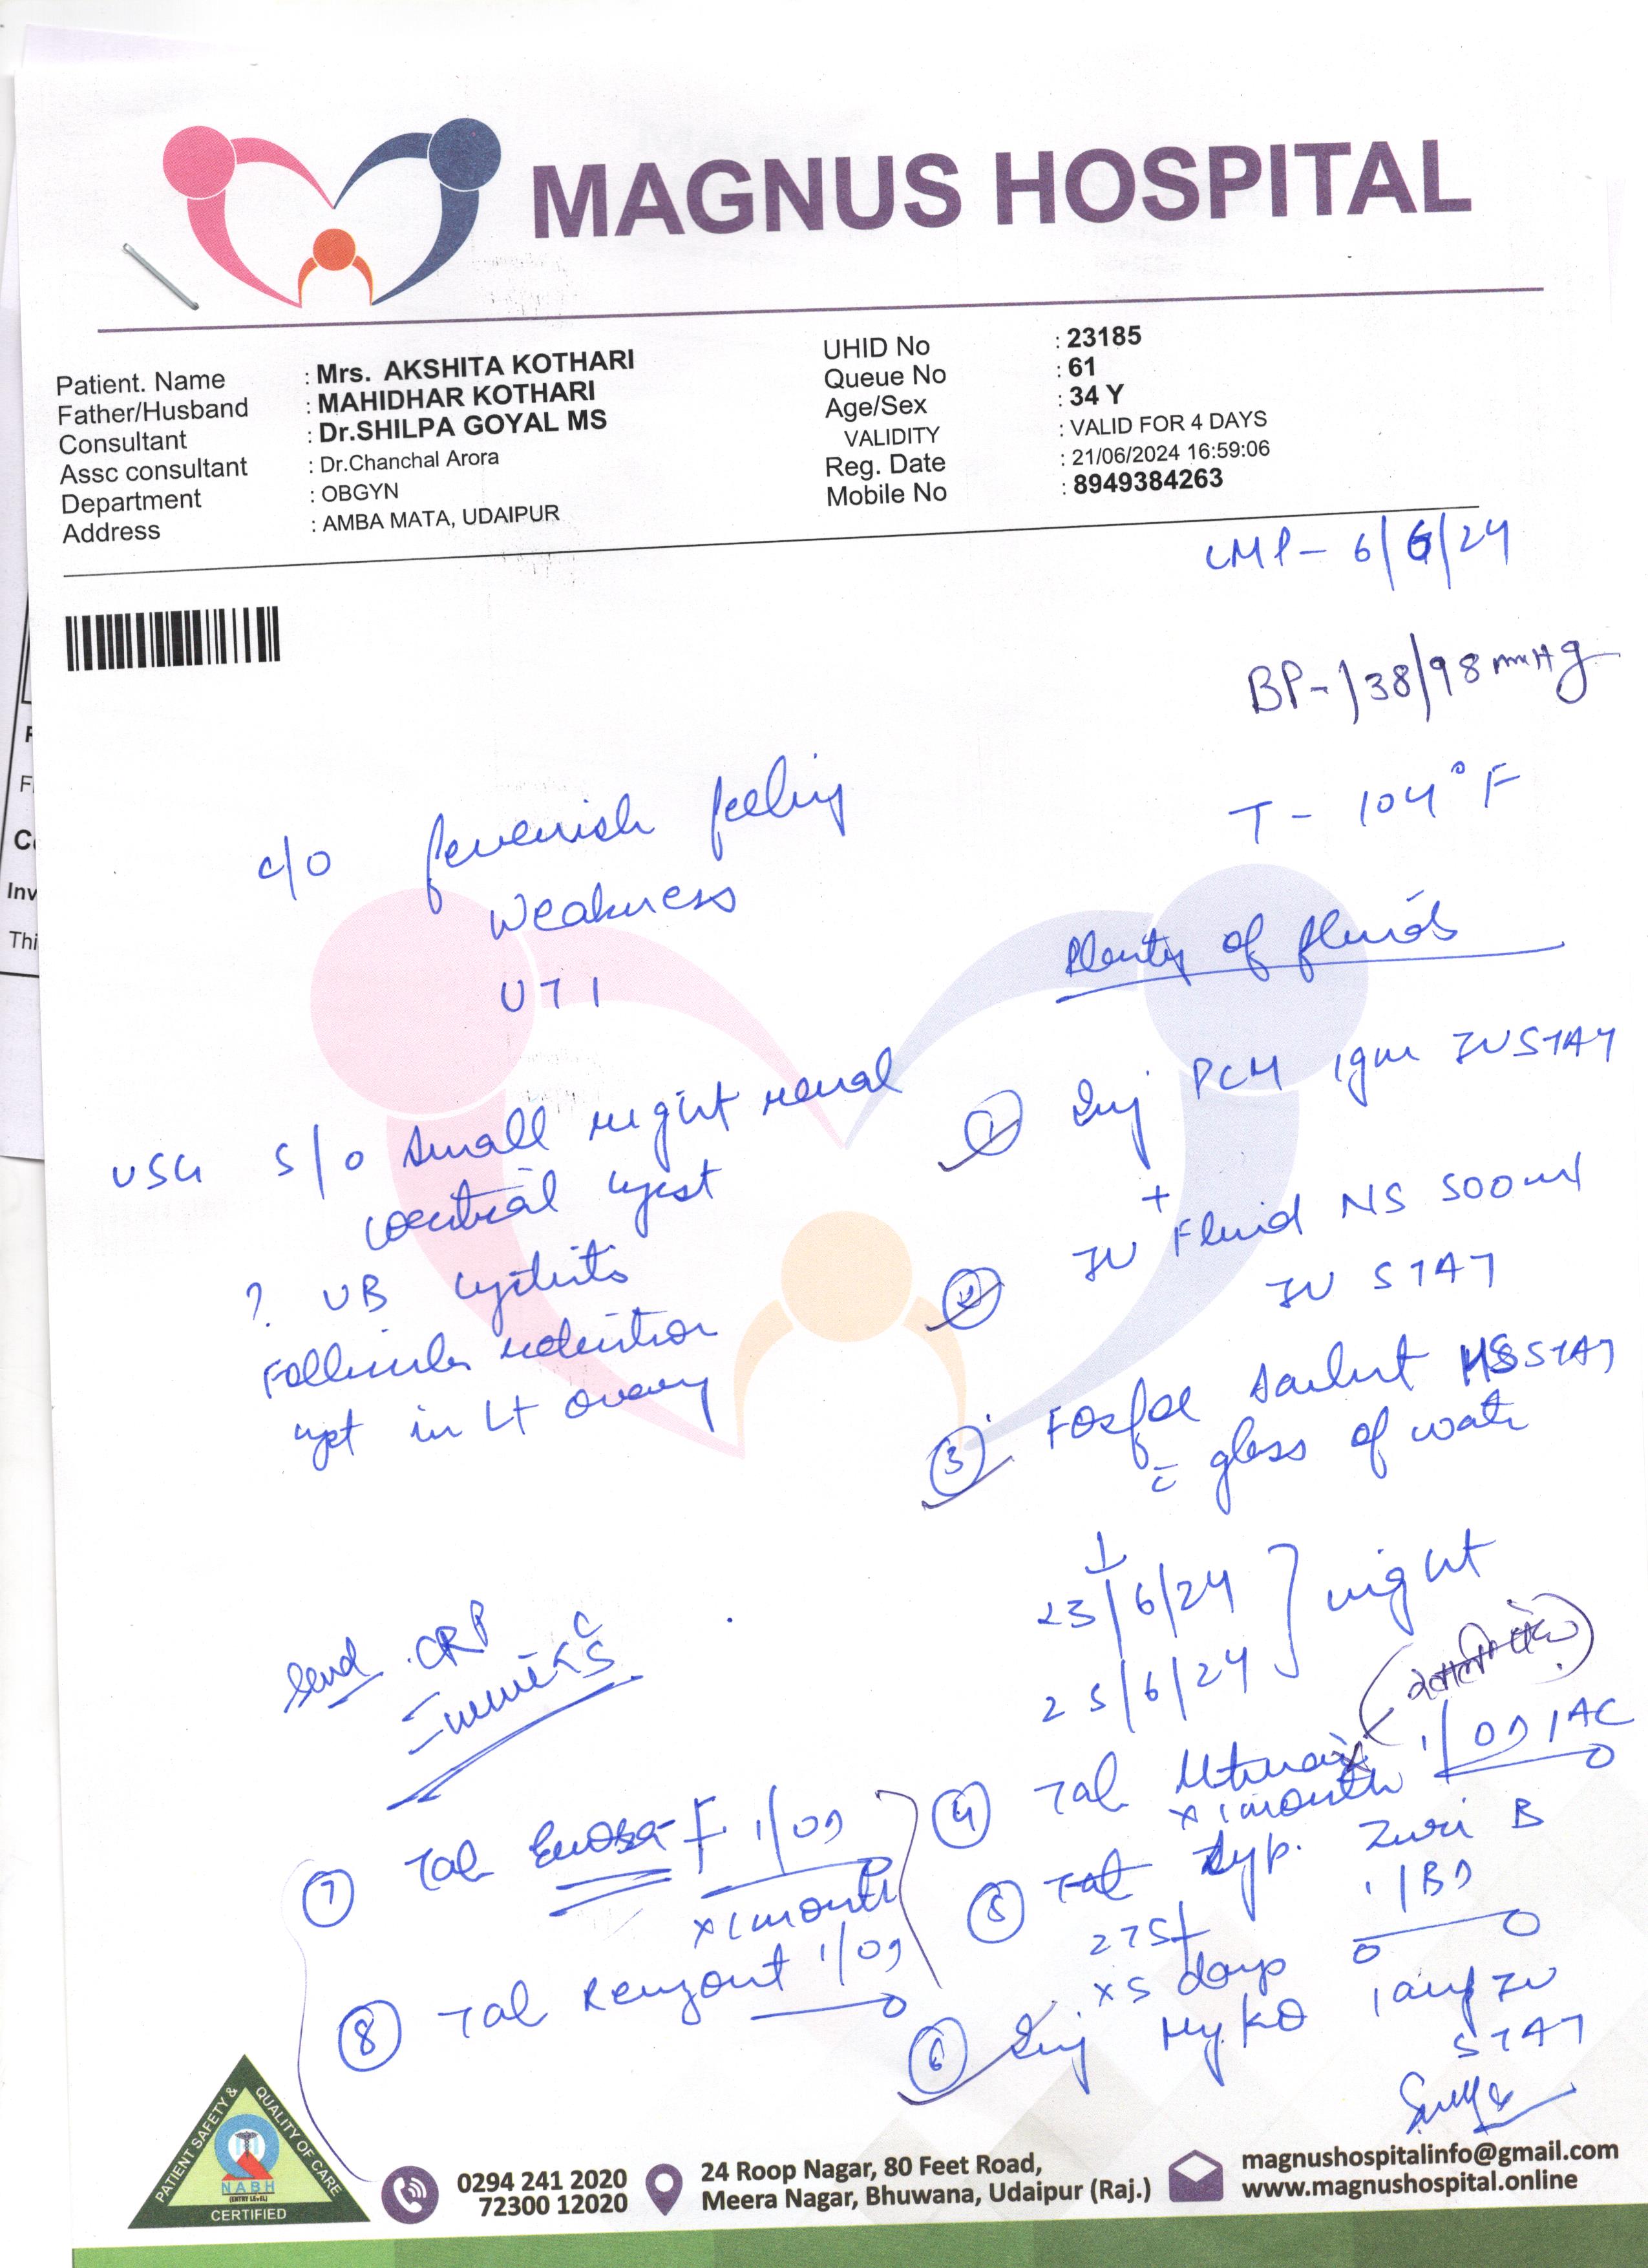 MAGNUS HOSPITAL
Patient. Name : Mrs. AKSHITA KOTHARI
Father/Husband : MAHIDHAR KOTHARI
Consultant : Dr.SHILPA GOYAL MS
Assc consultant : Dr.Chanchal Arora
Department : OBGYN
Address : AMBA MATA, UDAIPUR
UHID No : 23185
Queue No : 61
Age/Sex : 34 Y
VALIDITY : VALID FOR 4 DAYS
Reg. Date : 21/06/2024 16:59:06
Mobile No : 8949384263
LMP - 6/6/24
BP - 138/98 mmHg
T - 104° F
c/o feverish feeling
weakness
UTI
USG S/O small right renal
cortical cyst
? UB cystitis
Follicular retention
cyst in Lt ovary
Send CRP
Urine C/S
Plenty of fluids
① Inj PCM 1gm IV STAT
+
② IV Fluid NS 500ml
IV STAT
③ sachet HS STAT
c̄ glass of water
23/6/24
25/6/24 } night
④ Tab 1/OD 1AC
x 1 month
⑤ Tab Syp. B
2TSF 1/BD
x 5 days
⑥ Inj 1amp IV
STAT
⑦ Tab 1/OD
x 1 month
⑧ Tab 1/OD
PATIENT SAFETY & QUALITY OF CARE
NABH
(ENTRY LEVEL)
CERTIFIED
0294 241 2020
72300 12020
24 Roop Nagar, 80 Feet Road,
Meera Nagar, Bhuwana, Udaipur (Raj.)
magnushospitalinfo@gmail.com
www.magnushospital.online
F
Inv
Thi